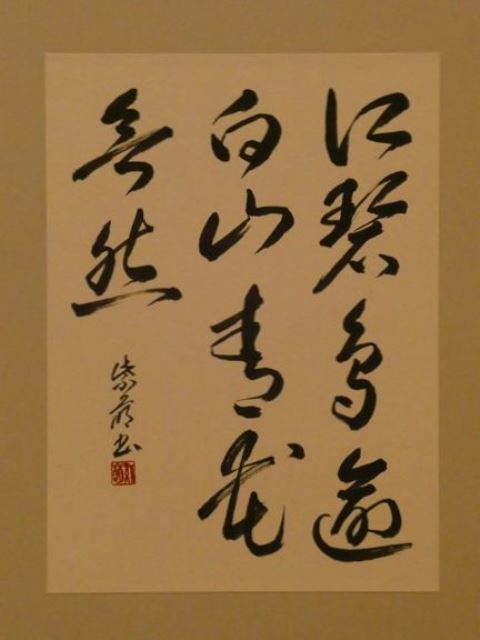 江碧鳥逾
白山青花
欲然
紫 書